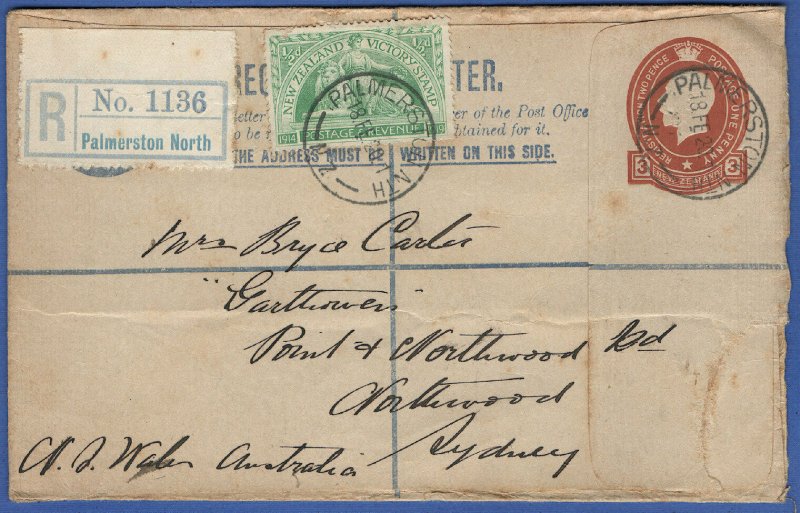 R No. 1136
Palmerston North
½d NEW ZEALAND VICTORY STAMP ½d
1914 POSTAGE & REVENUE 1919
REG TTER.
etter er of the Post Office
to be btained for it.
THE ADDRESS MUST WRITTEN ON THIS SIDE.
PALMERSTON NTH
18 FE 20
N.Z.
POSTAGE ONE PENNY
TWO PENCE
3 3
PALMERSTON NTH
18 FE 2
Mrs Bryce Carter
"Garthowen"
Point & Northwood Rd
Northwood
Sydney
N. S. Wales Australia